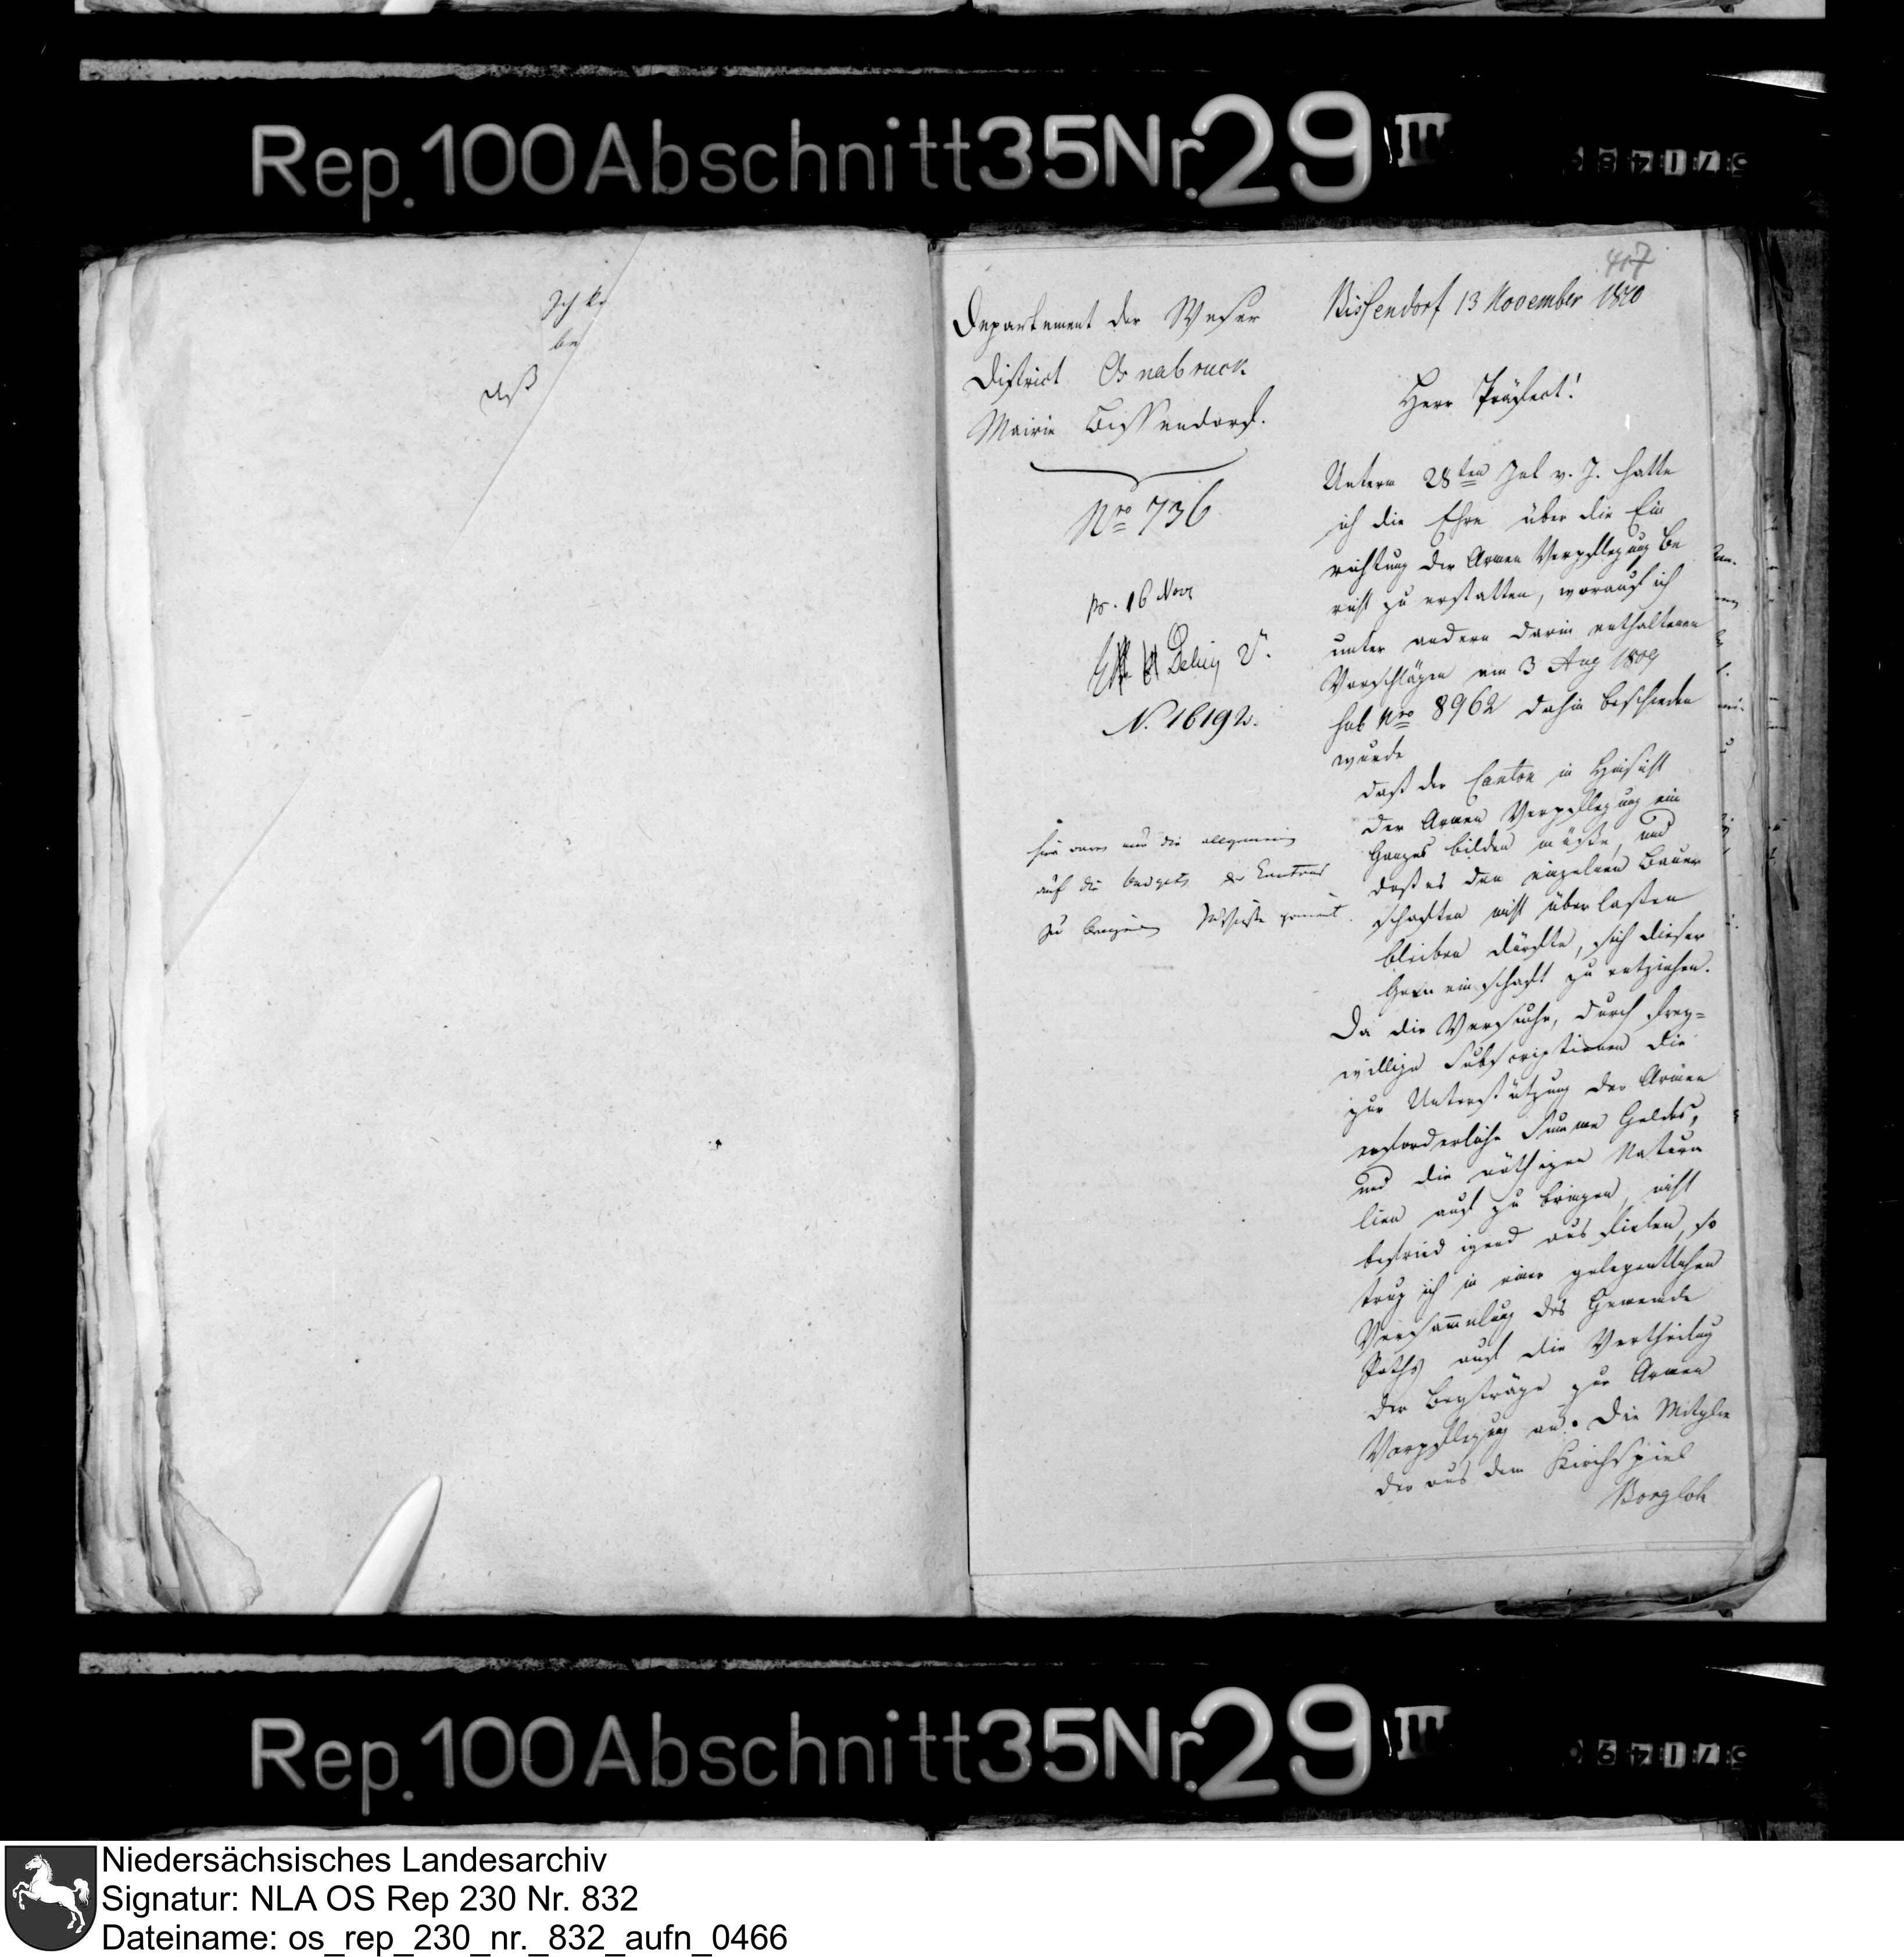 Rep. 100 Abschnitt 35 Nr. 29 III
417
Departement der Weser
District Osnabruck
Mairie Bissendorf.
Nro 736
pr. 16 Novr
N. 16192.
hier
auf die budgets der Kantons
zu
Bissendorf 13 November 1810
Herr Präfect!
Unterm 28ten Jul v. J. hatte
ich die Ehre über die Ein
richtung der Armen Verpflegung Be
richt zu erstatten, worauf ich
unter andern darin enthaltenen
Vorschlägen am 3 Aug 1809
sub Nro 8962 dahin beschieden
wurde
daß der Canton in Hinsicht
der Armen Verpflegung ein
Ganzes bilden müße, und
daß es den einzelnen Bauer
schaften nicht überlaßen
bleiben dürfte, sich dieser
Gemeinschaft zu entziehen.
Da die Versuche, durch frey=
willige Subscriptionen die
zur Unterstützung der Armen
erforderliche Summe Geldes,
und die nöthigen Natura
lien auf zu bringen, nicht
befriedigend ausfielen, so
trug ich in einer gelegentlichen
Versammlung des Gemeinde
Raths auf die Vertheilung
der Beyträge zur Armen
Verpflegung an. Die Mitglie
der aus dem Kirchspiel
Borgloh
Rep. 100 Abschnitt 35 Nr. 29 III
Niedersächsisches Landesarchiv
Signatur: NLA OS Rep 230 Nr. 832
Dateiname: os_rep_230_nr._832_aufn_0466